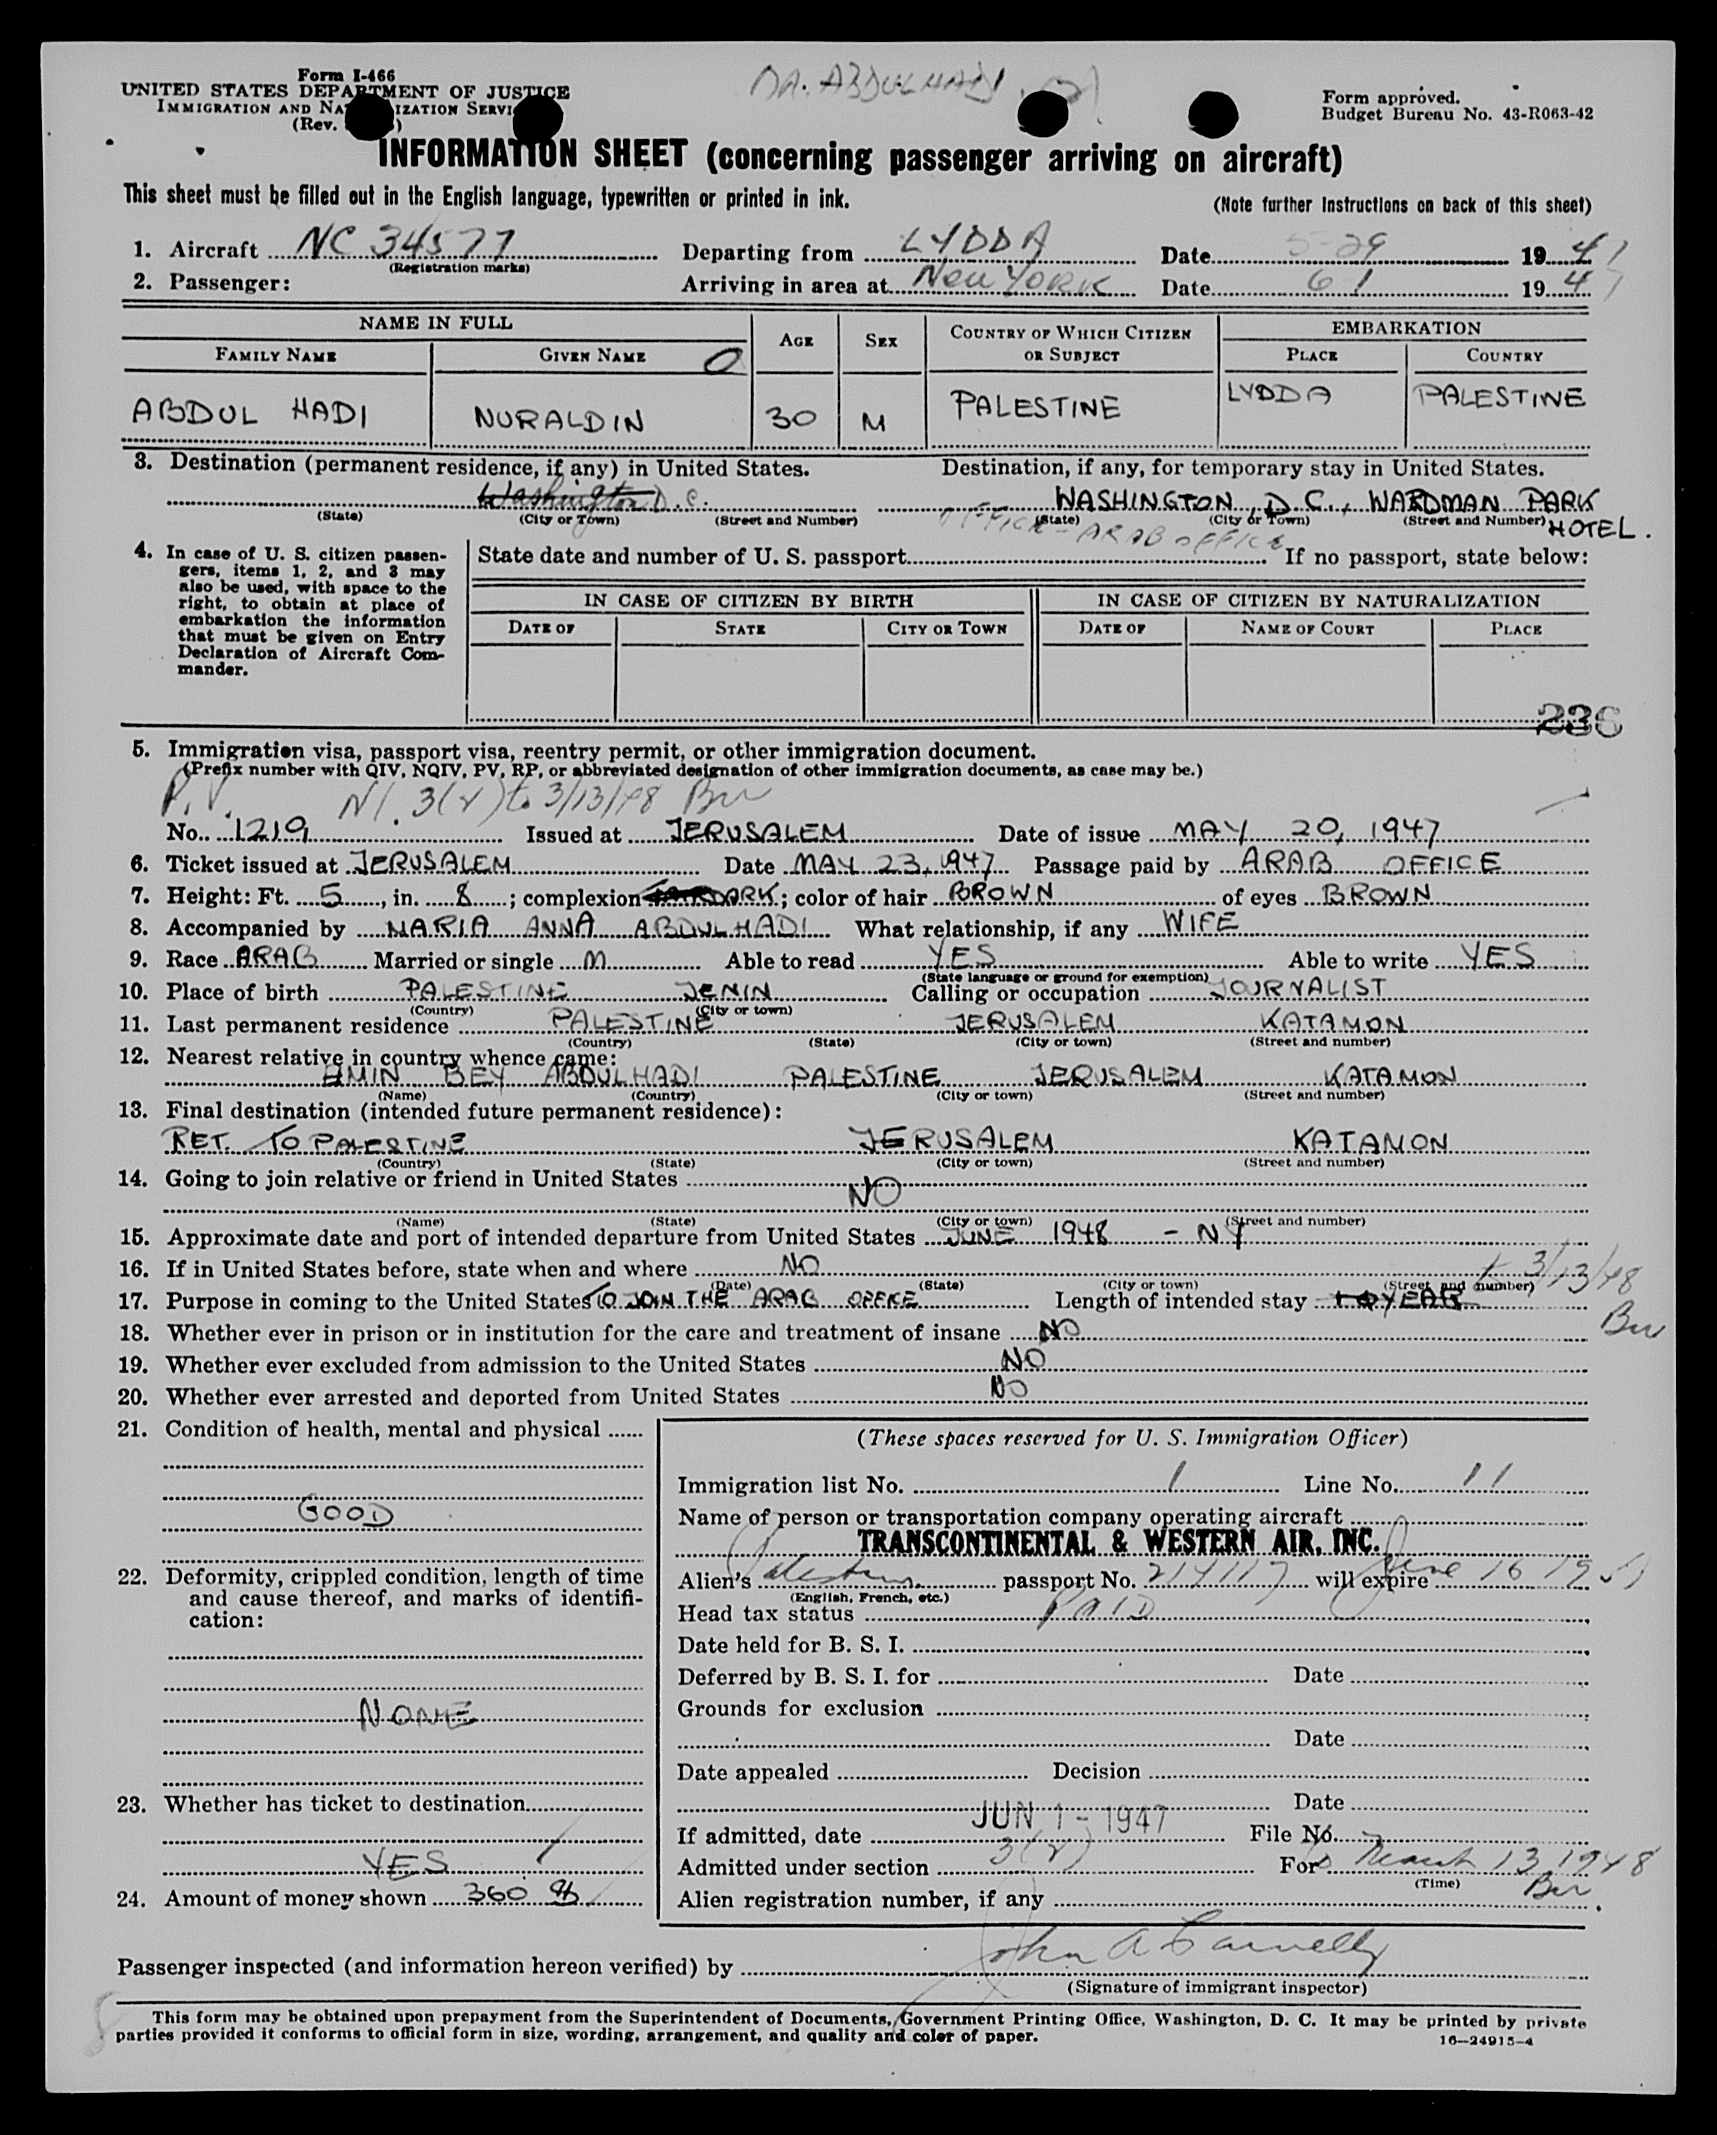 Form I-466
UNITED STATES DEPARTMENT OF JUSTICE
IMMIGRATION AND NA IZATION SERVI
(Rev. )
DR. ABDULHADI
Form approved.
Budget Bureau No. 43-R063-42
INFORMATION SHEET (concerning passenger arriving on aircraft)
This sheet must be filled out in the English language, typewritten or printed in ink.
(Note further instructions on back of this sheet)
1. Aircraft NC 34577 Departing from LYDDA Date 5-29 1947
(Registration marks)
2. Passenger: Arriving in area at New York Date 6 1 1947
NAME IN FULL AGE SEX COUNTRY OF WHICH CITIZEN OR SUBJECT EMBARKATION
FAMILY NAME GIVEN NAME PLACE COUNTRY
ABDUL HADI NURALDIN 30 M PALESTINE LYDDA PALESTINE
3. Destination (permanent residence, if any) in United States. Destination, if any, for temporary stay in United States.
Washington D.C. WASHINGTON, D.C., WARDMAN PARK HOTEL.
(State) (City or Town) (Street and Number) (State) (City or Town) (Street and Number)
OFFICE - ARAB OFFICE
4. In case of U. S. citizen passen-
gers, items 1, 2, and 3 may
also be used, with space to the
right, to obtain at place of
embarkation the information
that must be given on Entry
Declaration of Aircraft Com-
mander.
State date and number of U. S. passport If no passport, state below:
IN CASE OF CITIZEN BY BIRTH IN CASE OF CITIZEN BY NATURALIZATION
DATE OF STATE CITY OR TOWN DATE OF NAME OF COURT PLACE
236
5. Immigration visa, passport visa, reentry permit, or other immigration document.
(Prefix number with QIV, NQIV, PV, RP, or abbreviated designation of other immigration documents, as case may be.)
P.V. 3(2) to 3/13/48
No. 1219 Issued at JERUSALEM Date of issue MAY 20, 1947
6. Ticket issued at JERUSALEM Date MAY 23, 1947 Passage paid by ARAB OFFICE
7. Height: Ft. 5, in. 8; complexion DARK; color of hair BROWN of eyes BROWN
8. Accompanied by MARIA ANNA ABDULHADI What relationship, if any WIFE
9. Race ARAB Married or single M Able to read YES Able to write YES
(State language or ground for exemption)
10. Place of birth PALESTINE JENIN Calling or occupation JOURNALIST
(Country) (City or town)
11. Last permanent residence PALESTINE JERUSALEM KATAMON
(Country) (State) (City or town) (Street and number)
12. Nearest relative in country whence came:
AMIN BEY ABDULHADI PALESTINE JERUSALEM KATAMON
(Name) (Country) (City or town) (Street and number)
13. Final destination (intended future permanent residence):
RET. TO PALESTINE JERUSALEM KATAMON
(Country) (State) (City or town) (Street and number)
14. Going to join relative or friend in United States
NO
(Name) (State) (City or town) (Street and number)
15. Approximate date and port of intended departure from United States JUNE 1948 - NY
16. If in United States before, state when and where NO
(Date) (State) (City or town) (Street and number)
t 3/13/48
17. Purpose in coming to the United States TO JOIN THE ARAB OFFICE Length of intended stay 1 YEAR
18. Whether ever in prison or in institution for the care and treatment of insane NO
19. Whether ever excluded from admission to the United States NO
20. Whether ever arrested and deported from United States NO
21. Condition of health, mental and physical
GOOD
22. Deformity, crippled condition, length of time
and cause thereof, and marks of identifi-
cation:
NONE
23. Whether has ticket to destination
YES
24. Amount of money shown 360 $
(These spaces reserved for U. S. Immigration Officer)
Immigration list No. 1 Line No. 11
Name of person or transportation company operating aircraft
TRANSCONTINENTAL & WESTERN AIR, INC.
Alien's Palestine passport No. 214117 will expire June 16 1951
(English, French, etc.)
Head tax status PAID
Date held for B. S. I.
Deferred by B. S. I. for Date
Grounds for exclusion
Date
Date appealed Decision
Date
If admitted, date JUN 1 - 1947 File No.
Admitted under section 3(2) For March 13, 1948
(Time)
Alien registration number, if any
Passenger inspected (and information hereon verified) by John A
(Signature of immigrant inspector)
This form may be obtained upon prepayment from the Superintendent of Documents, Government Printing Office, Washington, D. C. It may be printed by private
parties provided it conforms to official form in size, wording, arrangement, and quality and color of paper.
16—24915-4